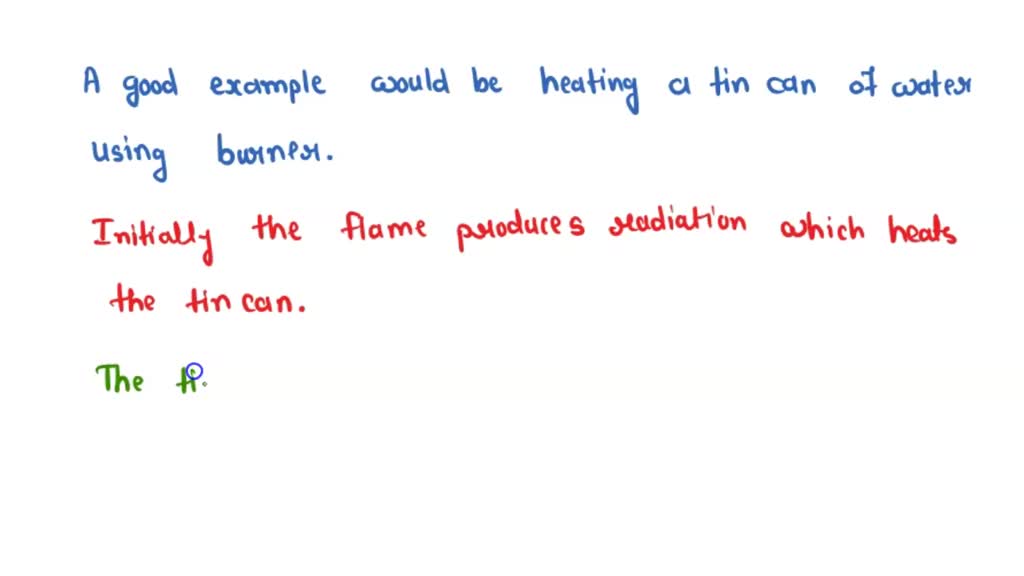 A good example would be heating a tin can of water
using burner.
Initially the flame produces radiation which heats
the tin can.
The ti